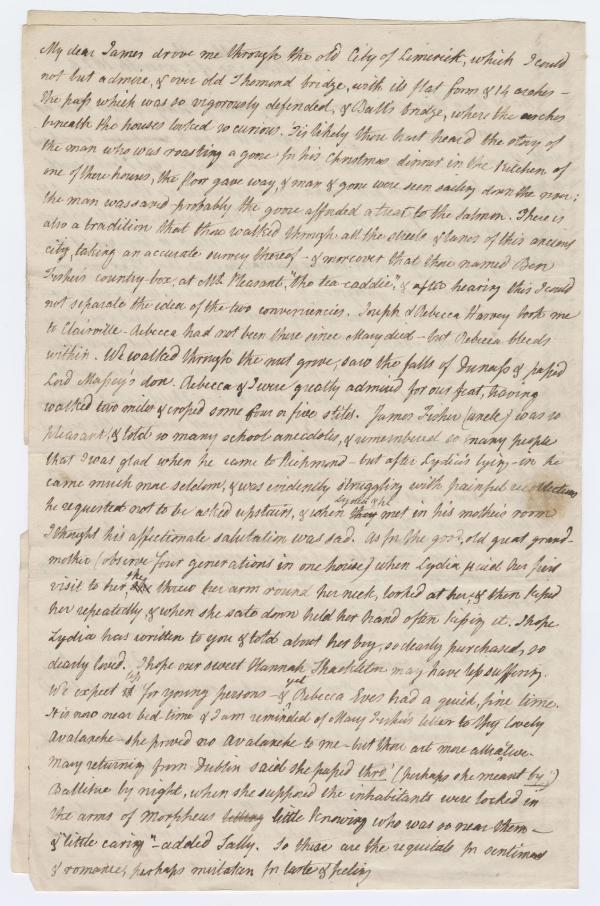 My dear James drove me through the old City of Limerick, which I could
not but admire, & over old Thomond bridge, with its flat form & 14 arches –
the pass which was so vigorously defended, & Ball's bridge, where the arches
beneath the houses looked so curious. Tis likely thou hast heard the story of
the man who was roasting a goose for his Christmas dinner in the kitchen of
one of these houses, the floor gave way, & man & goose were seen sailing down the river;
the man was saved – probably the goose afforded a treat to the salmon. There is
also a tradition that thou walked through all the streets & lanes of this ancient
city, taking an accurate survey thereof – & moreover that thou named Ben
Fisher's country-box, at Mt. Pleasant, "the tea-caddie", & after hearing this I could
not separate the idea of the two conveniencies. Joseph & Rebecca Harvey took me
to Clairville – Rebecca had not been there since Mary died – but Rebecca bleeds
within. We walked through the nut grove, saw the falls of Dunass & passed
Lord Massey's door. Rebecca & I were greatly admired for our feat, having
walked two miles & crossed some four or five stiles. James Fisher (uncle) was so
pleasant, & told so many school anecdotes, & remembered so many people
that I was glad when he came to Richmond – but after Lydia's lying-in he
came much more seldom, & was evidently struggling with painful recollections
he requested not to be asked upstairs, & when they Lydia & he met in his mother's room
I thought his affectionate salutation was sad. As for the good, old great grand-
mother (observe four generations in one house) when Lydia paid her first
visit to her, she threw her arm round her neck, looked at her, & then kissed
her repeatedly, & when she sate down held her hand often kissing it. I hope
Lydia has written to you & told about her boy, so dearly purchased, so
dearly loved. I hope our sweet Hannah Shackleton may have less suffering.
We expect it less for young persons – & yet Rebecca Eves had a quick, fine time.
It is now near bed-time & I am reminded of Mary Fisher's letter to thy lovely
Avalanche – she proved no Avalanche to me – but thou art more attractive.
Mary returning from Dublin said she passed thro' (perhaps she meant 'by')
Ballitore by night, when she supposed the inhabitants were locked in
the arms of Morpheus little knowing who was so near them –
& "little caring" – added Sally. So these are the requitals for sentiment
& romance, perhaps mistaken for taste & feeling